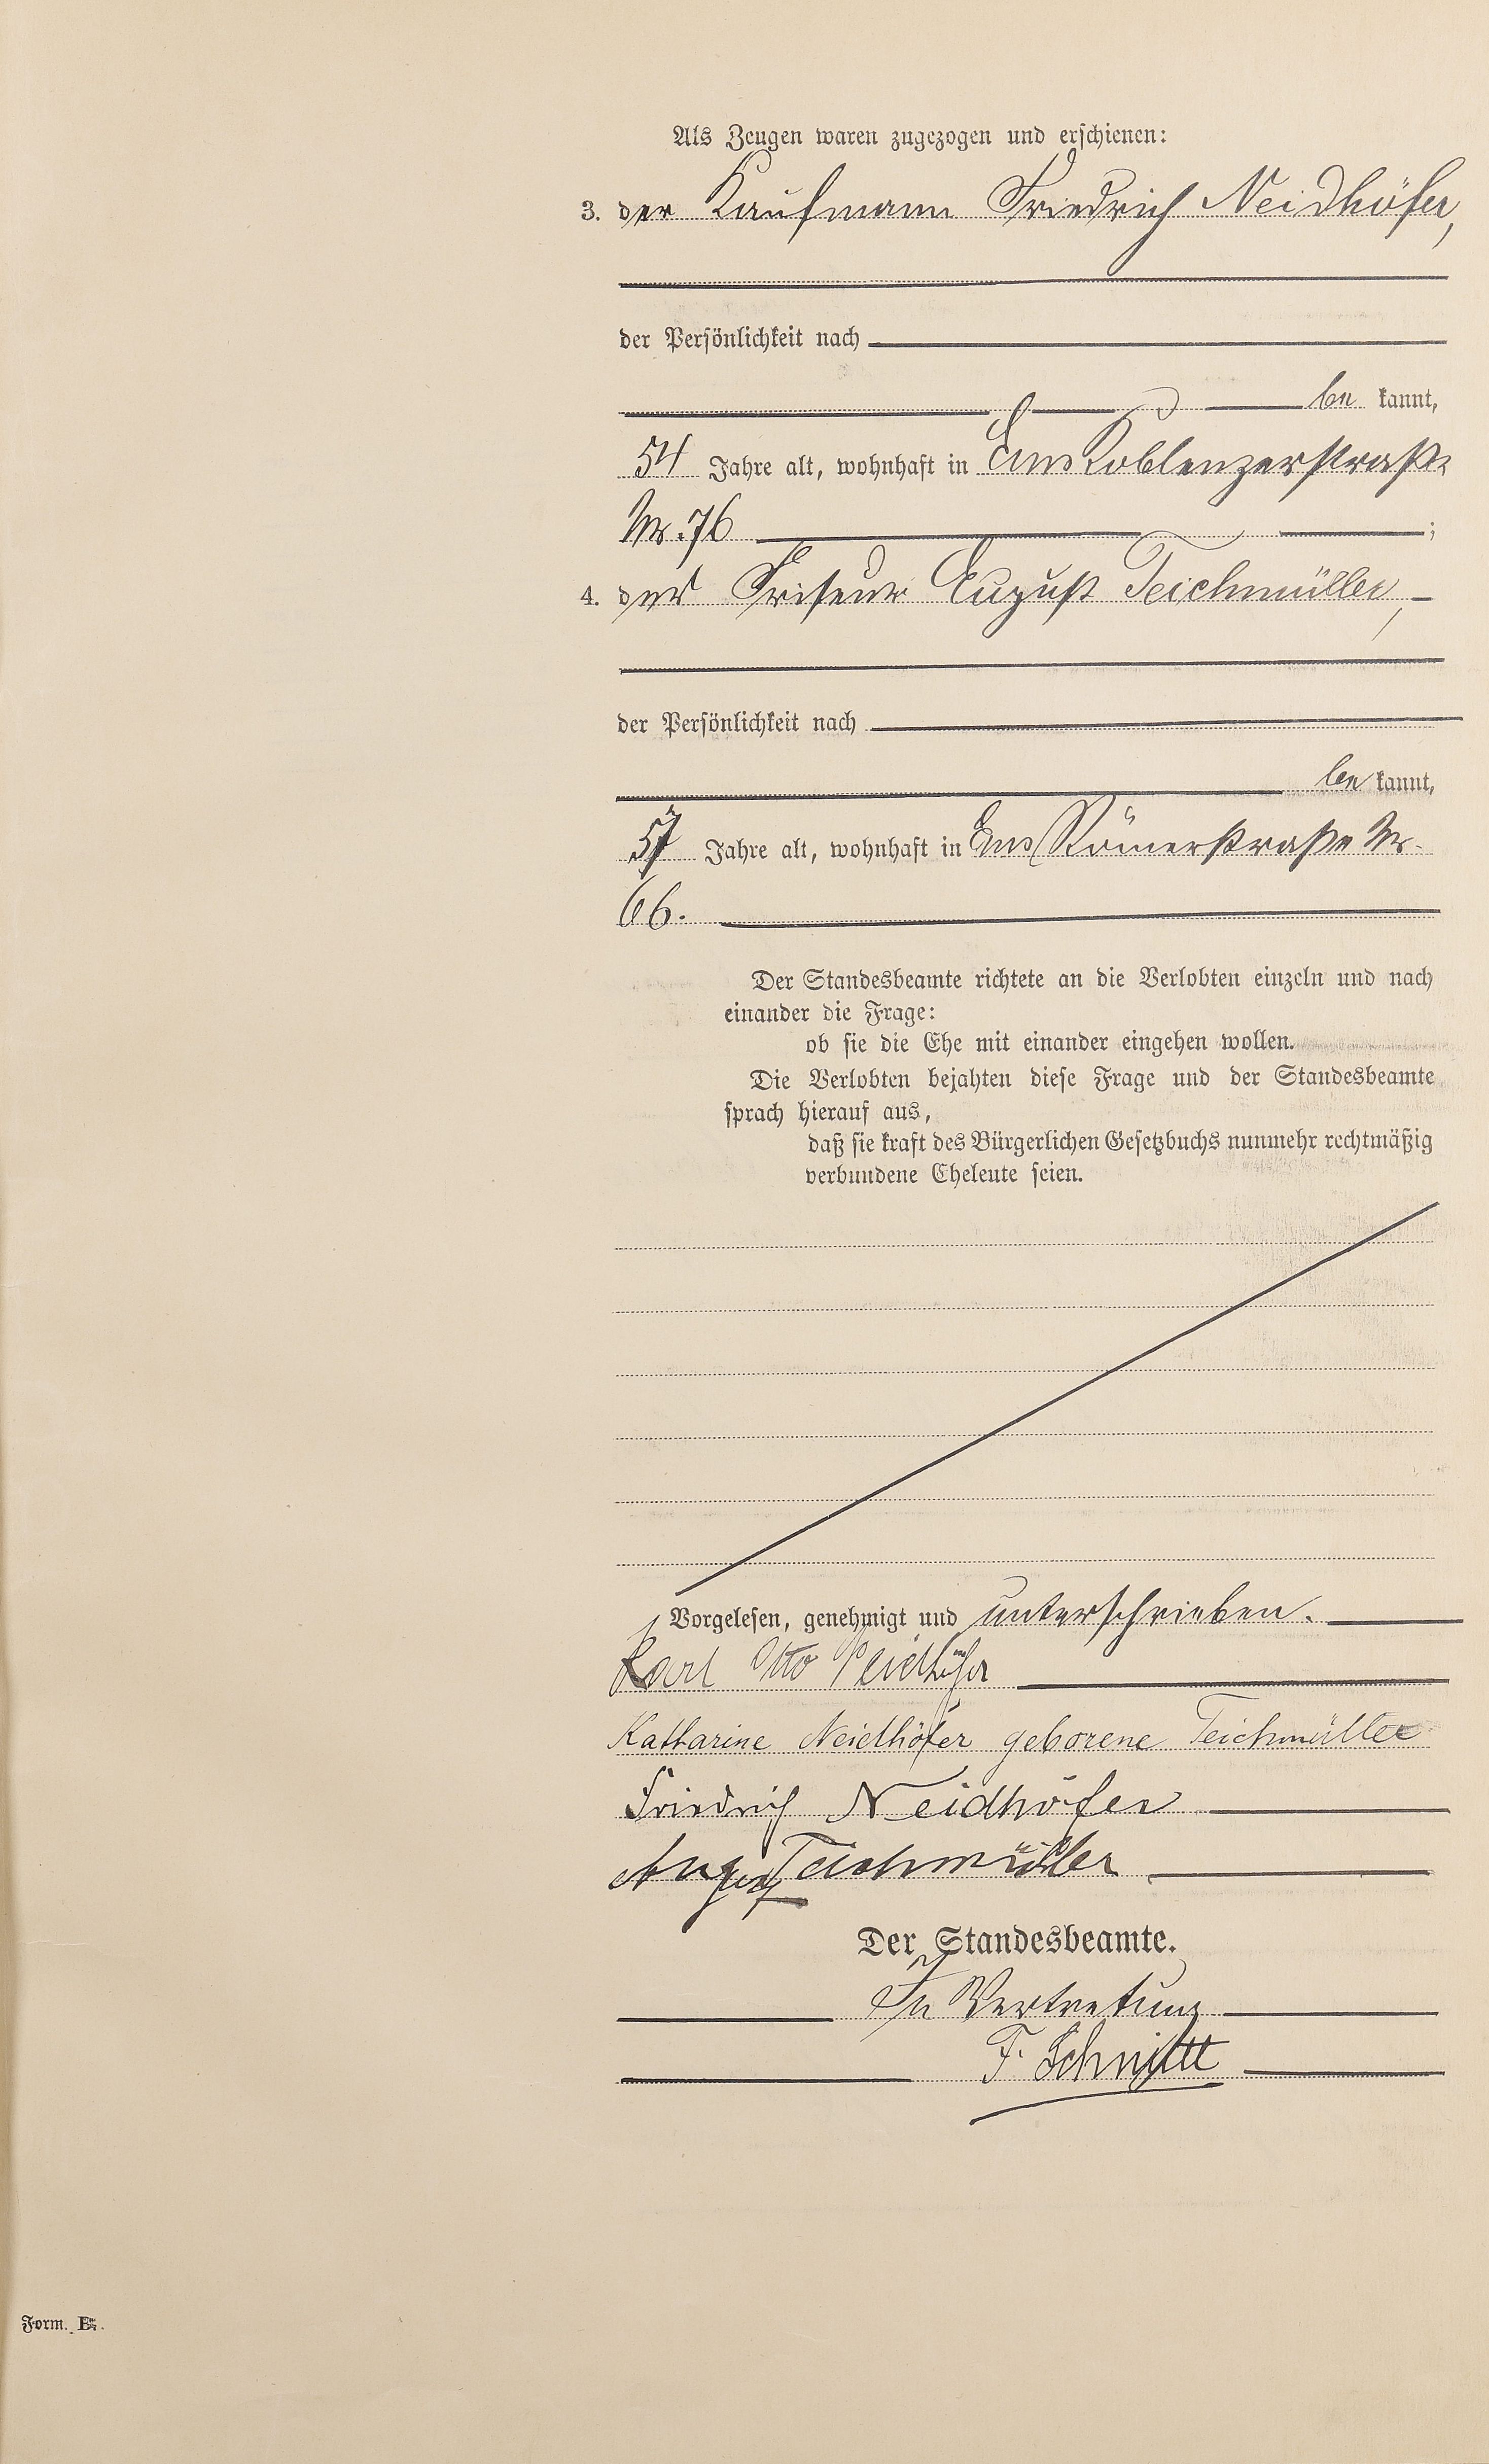 Als Zeugen waren zugezogen und erschienen:
3. der Kaufmann Friedrich Neidhöfer,
der Persönlichkeit nach
be kannt,
54 Jahre alt, wohnhaft in Ems Koblenzerstraße
Nr. 76 ;
4. der Friseur August Teichmüller,
der Persönlichkeit nach
be kannt,
57 Jahre alt, wohnhaft in Ems Römerstraße Nr.
66.
Der Standesbeamte richtete an die Verlobten einzeln und nach
einander die Frage:
ob sie die Ehe mit einander eingehen wollen.
Die Verlobten bejahten diese Frage und der Standesbeamte
sprach hierauf aus,
daß sie kraft des Bürgerlichen Gesetzbuchs nunmehr rechtmäßig
verbundene Eheleute seien.
Vorgelesen, genehmigt und unterschrieben.
Karl Otto Neidhöfer
Katharine Neidhöfer geborene Teichmüller
Friedrich Neidhöfer
August Teichmüller
Der Standesbeamte.
In Vertretung
F. Schmitt
Form. E.